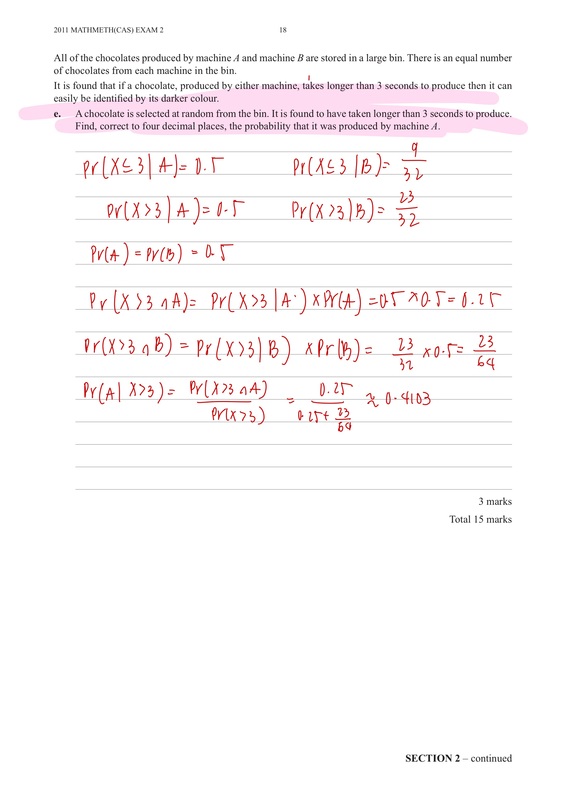 2011 MATHMETH(CAS) EXAM 2 18
All of the chocolates produced by machine A and machine B are stored in a large bin. There is an equal number
of chocolates from each machine in the bin.
It is found that if a chocolate, produced by either machine, takes longer than 3 seconds to produce then it can
easily be identified by its darker colour.
e. A chocolate is selected at random from the bin. It is found to have taken longer than 3 seconds to produce.
Find, correct to four decimal places, the probability that it was produced by machine A.
Pr(X≤3|A)=0.5 Pr(X≤3|B)=9/32
Pr(X>3|A)=0.5 Pr(X>3|B)=23/32
Pr(A)=Pr(B)=0.5
Pr(X>3∩A)=Pr(X>3|A)×Pr(A)=0.5×0.5=0.25
Pr(X>3∩B)=Pr(X>3|B)×Pr(B)=23/32×0.5=23/64
Pr(A|X>3)=Pr(X>3∩A)/Pr(X>3)=0.25/(0.25+23/64)≈0.4103
3 marks
Total 15 marks
SECTION 2 – continued